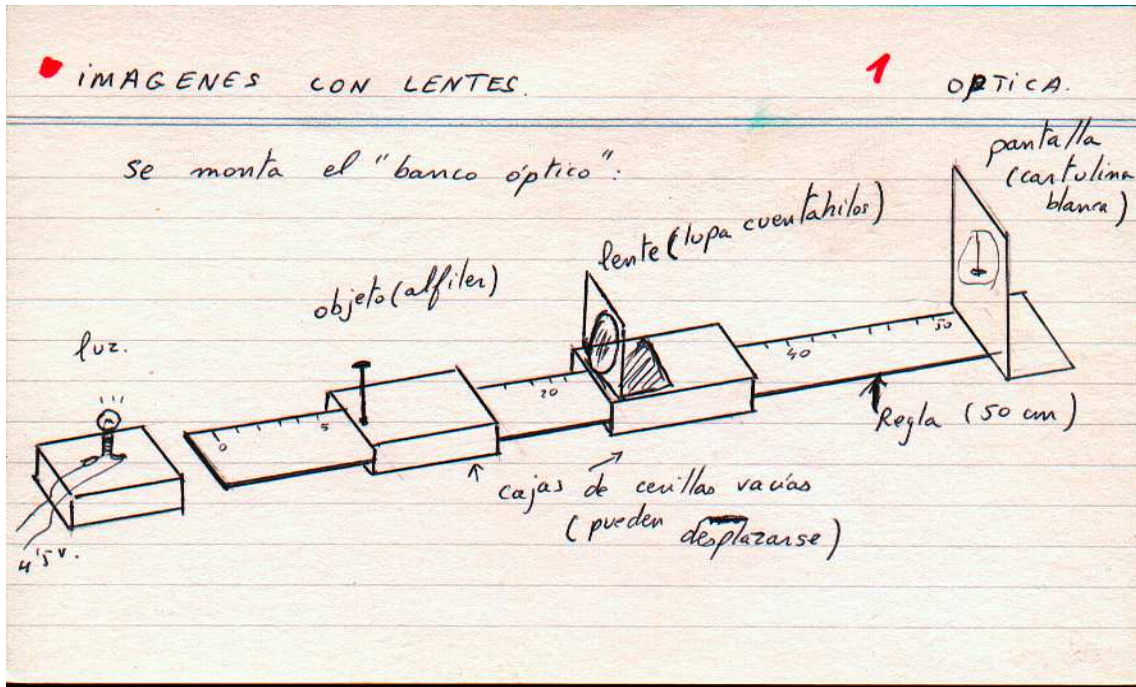 IMAGENES CON LENTES.
1
OPTICA.
se monta el "banco óptico":
pantalla
(cartulina
blanca)
lente (lupa cuentahilos)
objeto (alfiler)
luz.
0
5
20
40
50
Regla (50 cm)
cajas de cerillas vacías
(pueden desplazarse)
4'5 v.